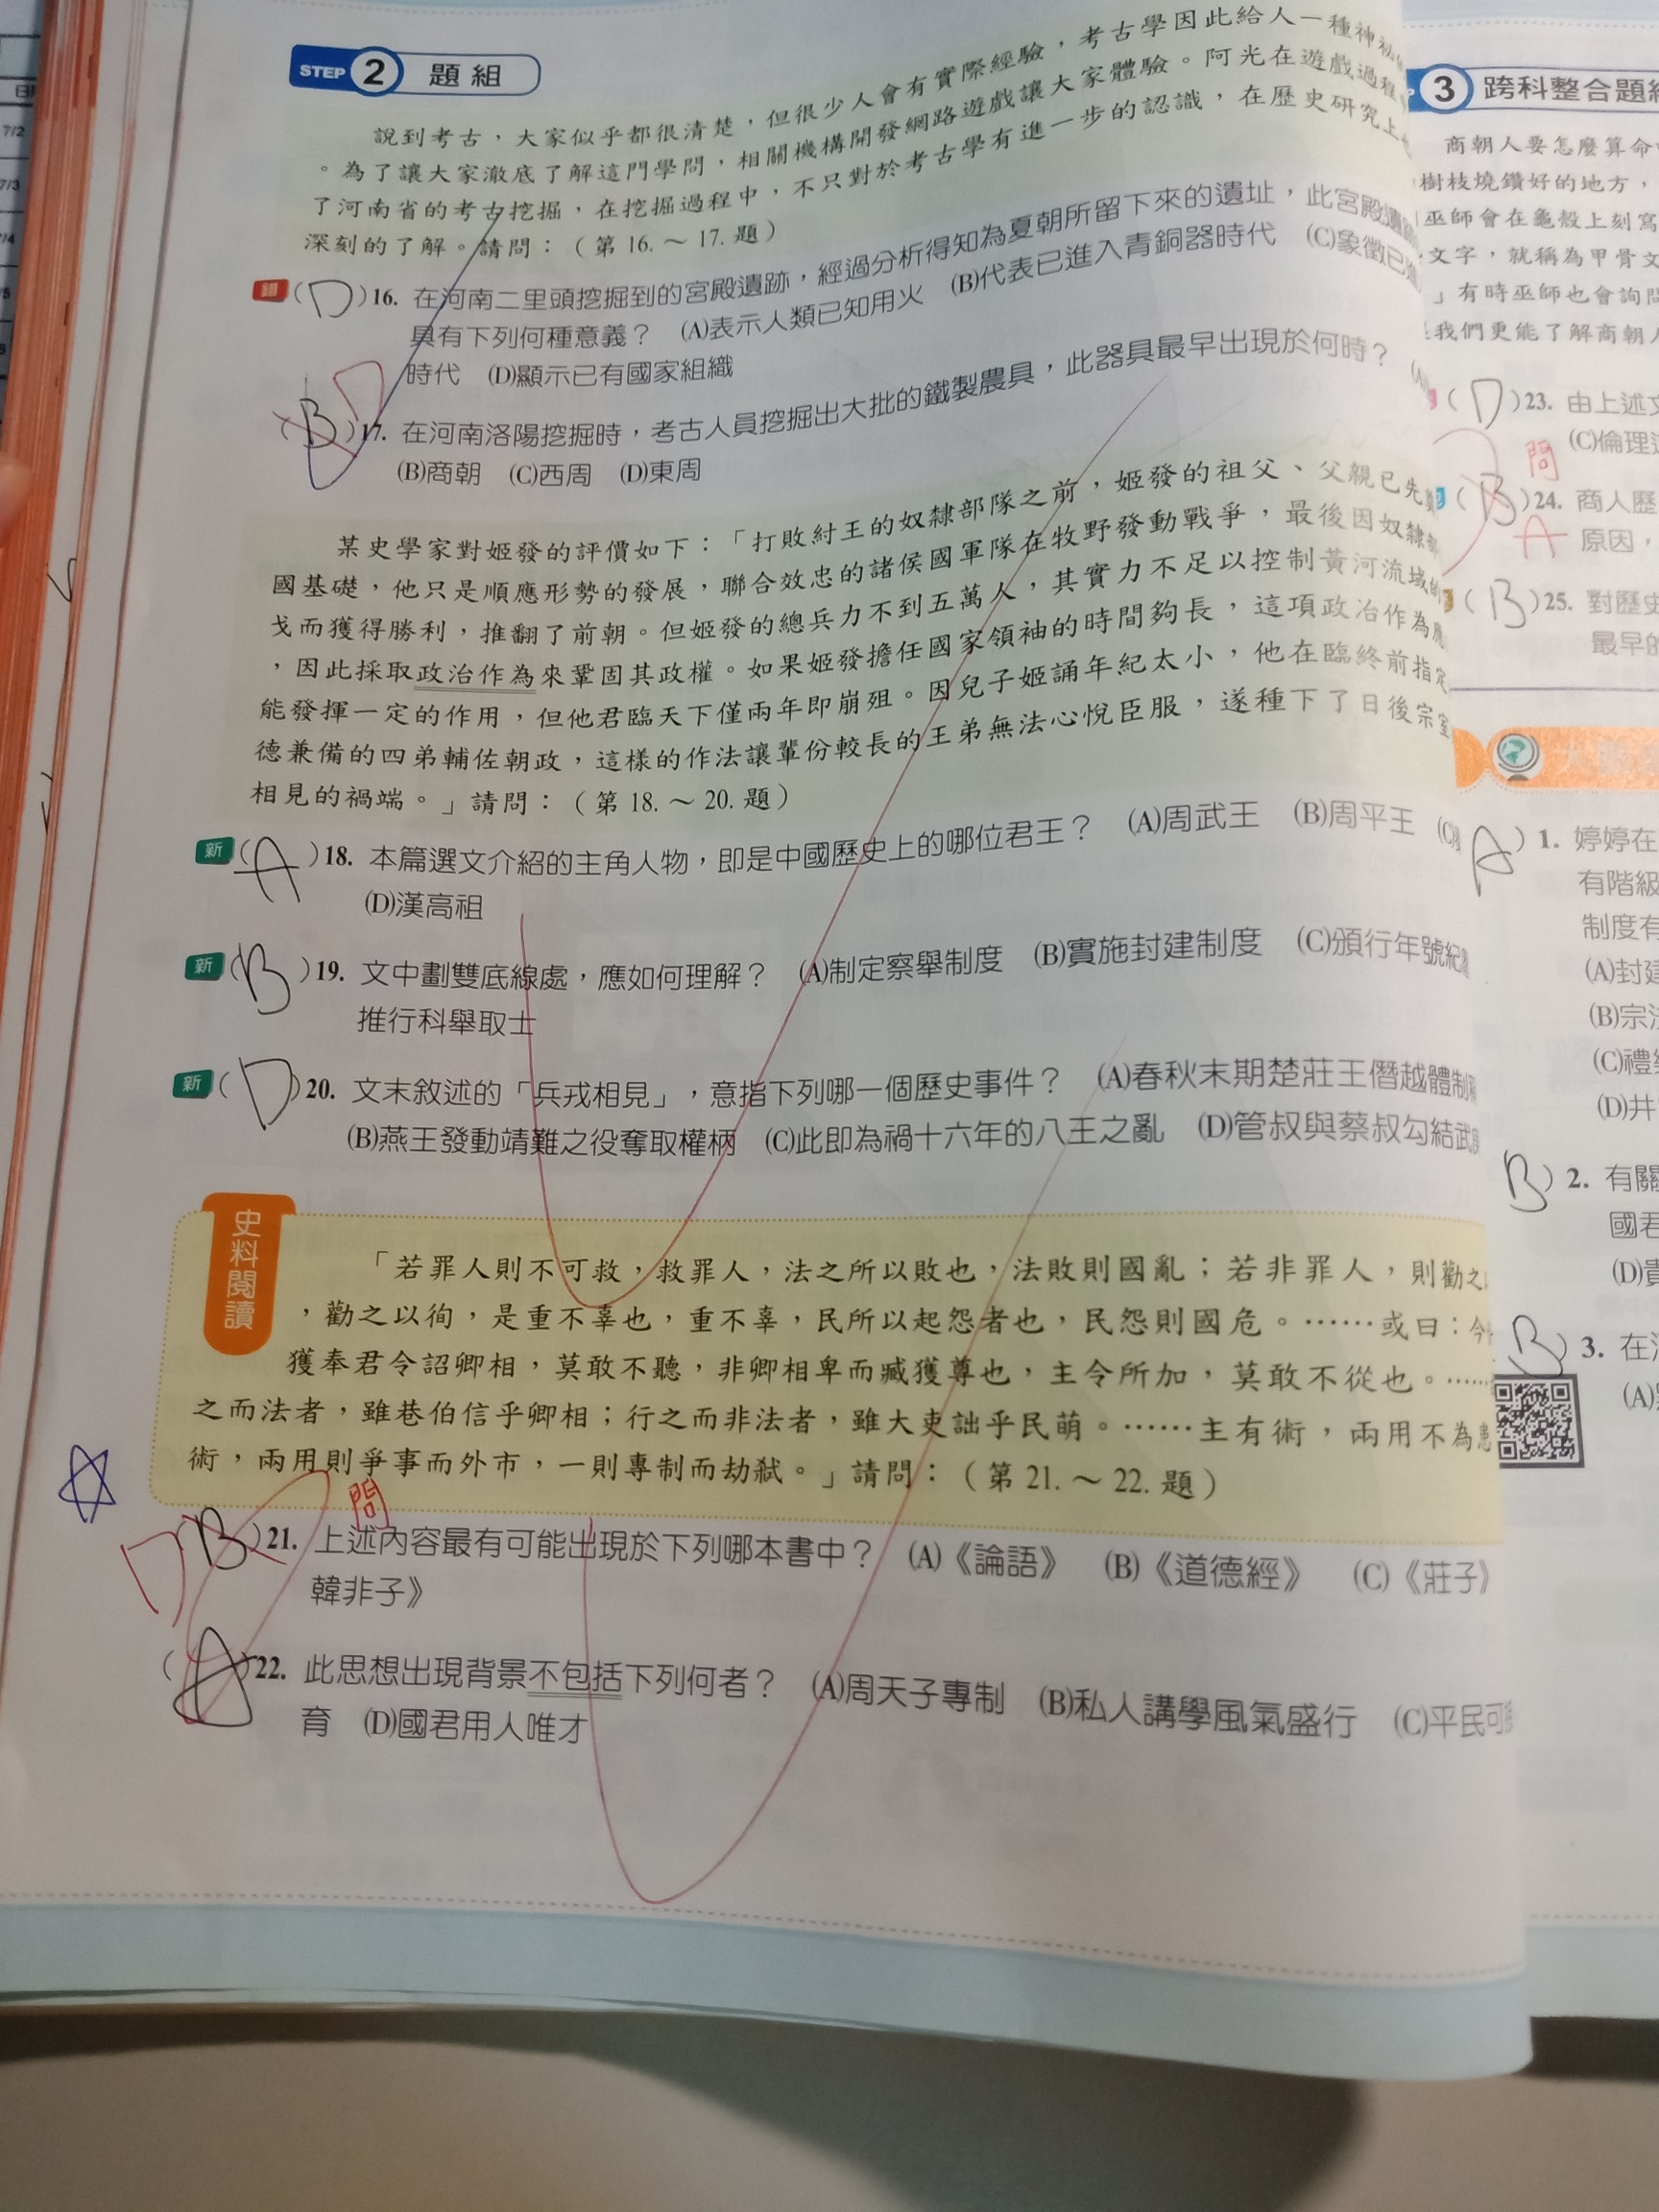 STEP 2 題組
說到考古，大家似乎都很清楚，但很少人會有實際經驗，考古學因此給人一種神祕
。為了讓大家澈底了解這門學問，相關機構開發網路遊戲讓大家體驗。阿光在遊戲過程
了河南省的考古挖掘，在挖掘過程中，不只對於考古學有進一步的認識，在歷史研究上
深刻的了解。請問：（第16.～17.題）
錯（D）16. 在河南二里頭挖掘到的宮殿遺跡，經過分析得知為夏朝所留下來的遺址，此宮殿遺
具有下列何種意義？ (A)表示人類已知用火 (B)代表已進入青銅器時代 (C)象徵已
時代 (D)顯示已有國家組織
（B）17. 在河南洛陽挖掘時，考古人員挖掘出大批的鐵製農具，此器具最早出現於何時？
D
(B)商朝 (C)西周 (D)東周
某史學家對姬發的評價如下：「打敗紂王的奴隸部隊之前，姬發的祖父、父親已先
國基礎，他只是順應形勢的發展，聯合效忠的諸侯國軍隊在牧野發動戰爭，最後因奴隸
戈而獲得勝利，推翻了前朝。但姬發的總兵力不到五萬人，其實力不足以控制黃河流域的
，因此採取政治作為來鞏固其政權。如果姬發擔任國家領袖的時間夠長，這項政治作為應
能發揮一定的作用，但他君臨天下僅兩年即崩殂。因兒子姬誦年紀太小，他在臨終前指定
德兼備的四弟輔佐朝政，這樣的作法讓輩份較長的王弟無法心悅臣服，遂種下了日後宗室
相見的禍端。」請問：（第18.～20.題）
新（A）18. 本篇選文介紹的主角人物，即是中國歷史上的哪位君王？ (A)周武王 (B)周平王 (C)
(D)漢高祖
新（B）19. 文中劃雙底線處，應如何理解？ (A)制定察舉制度 (B)實施封建制度 (C)頒行年號紀
推行科舉取士
新（D）20. 文末敘述的「兵戎相見」，意指下列哪一個歷史事件？ (A)春秋末期楚莊王僭越體制
(B)燕王發動靖難之役奪取權柄 (C)此即為禍十六年的八王之亂 (D)管叔與蔡叔勾結武
史料閱讀
「若罪人則不可救，救罪人，法之所以敗也，法敗則國亂；若非罪人，則勸之
，勸之以徇，是重不辜也，重不辜，民所以起怨者也，民怨則國危。……或曰：今
獲奉君令詔卿相，莫敢不聽，非卿相卑而臧獲尊也，主令所加，莫敢不從也。……
之而法者，雖巷伯信乎卿相；行之而非法者，雖大吏詘乎民萌。……主有術，兩用不為患
術，兩用則爭事而外市，一則專制而劫弒。」請問：（第21.～22.題）
問
D（B）21. 上述內容最有可能出現於下列哪本書中？ (A)《論語》 (B)《道德經》 (C)《莊子》
韓非子》
（A）22. 此思想出現背景不包括下列何者？ (A)周天子專制 (B)私人講學風氣盛行 (C)平民可
育 (D)國君用人唯才
3 跨科整合題組
商朝人要怎麼算命
樹枝燒鑽好的地方，
巫師會在龜殼上刻寫
文字，就稱為甲骨文
」有時巫師也會詢問
我們更能了解商朝人
（D）23. 由上述文
(C)倫理
問
（B）24. 商人歷
A 原因，
（B）25. 對歷史
最早的
A）1. 婷婷在
有階級
制度有
(A)封建
(B)宗法
(C)禮樂
(D)井
B）2. 有關
國君
(D)貴
B）3. 在
(A)